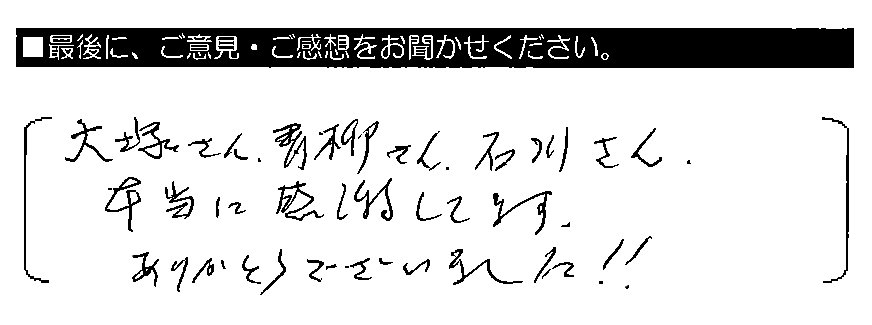 ■最後に、ご意見・ご感想をお聞かせください。
大塚さん、青柳さん、石川さん、
本当に感謝してます。
ありがとうございました!!